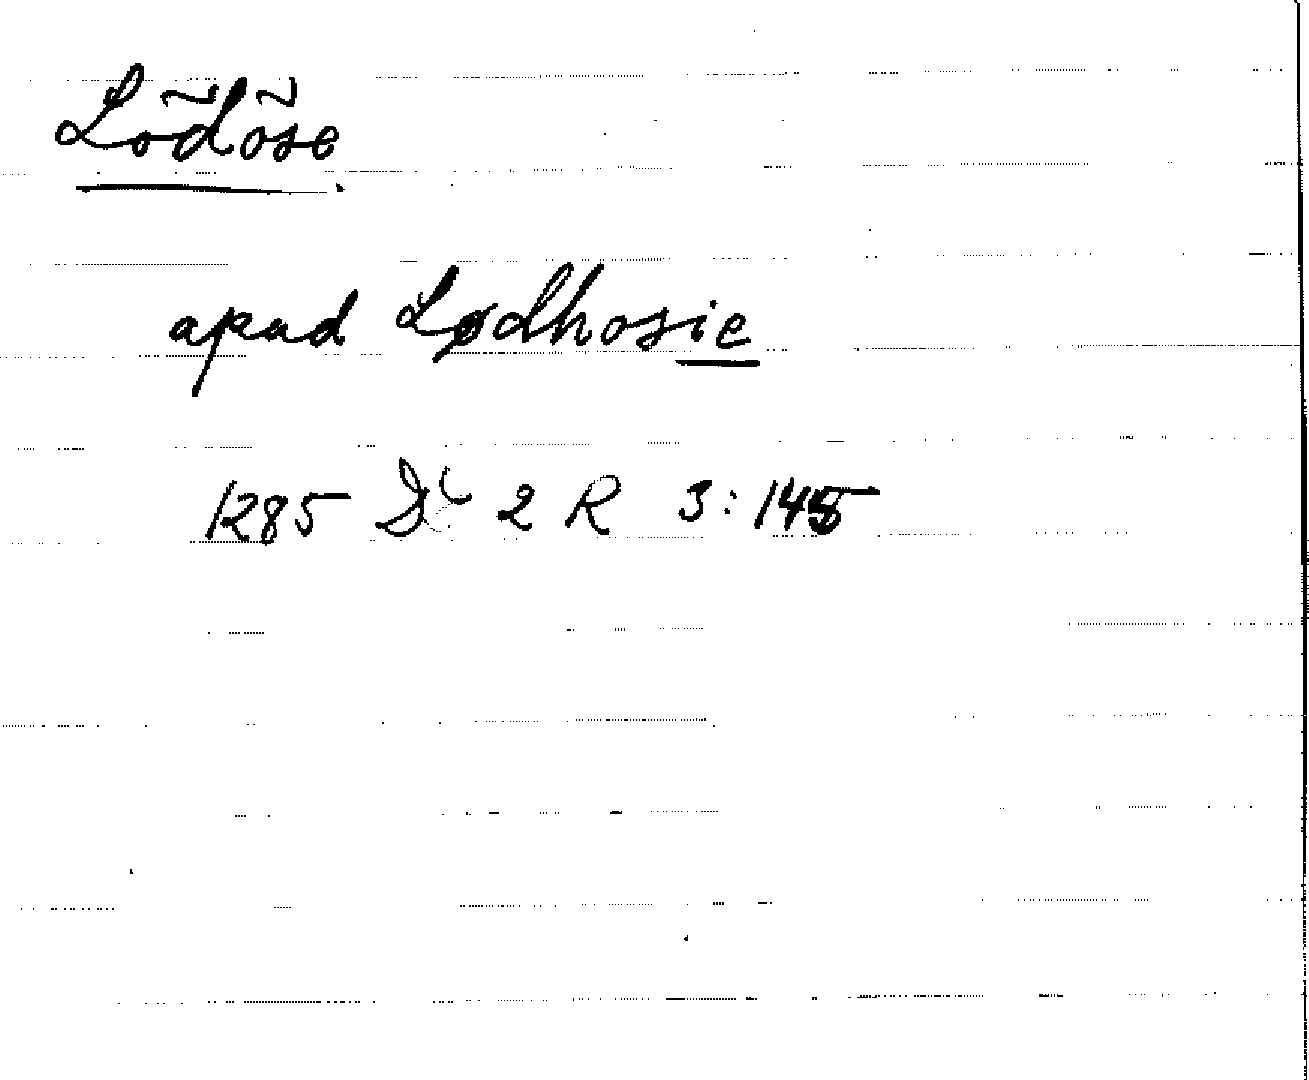 Lödöse
apud Lødhosie
1285 2 R 3:145